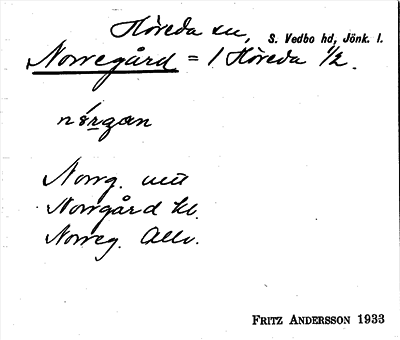 Höreda sn, S. Vedbo hd, Jönk. l.
Norregård = 1 Höreda 1/2.
Norrg. uttt
Norrgård kl.
Norreg. Allv.
FRITZ ANDERSSON 1933